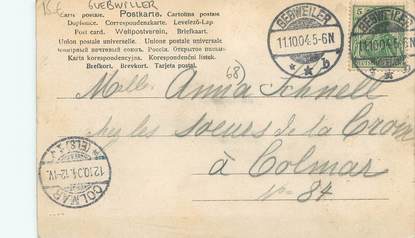 15 € GUEBWILLER
Carte postale. Postkarte. Cartolina postale
Dopisnice. Correspondenzkarte. Levelező-Lap
Post card. Weltpostverein. Briefkaart.
Union postale universelle. Unione postale universale
Почтовый почтовый союз. Россiя. Открытое письмо
Karta korespondencyjna. Korespondenčni listek.
Brefkort. Brevkort. Tarjeta postal.
GEBWEILER
11.10.04.5-6N
b
GEBWEILER
11.10.04.5-6N
b
5
68)
Melle Anna Schnell
chez les soeurs de la Croix
à Colmar
No 84
COLMAR
12.10.04.12-1V.
(ELS.)